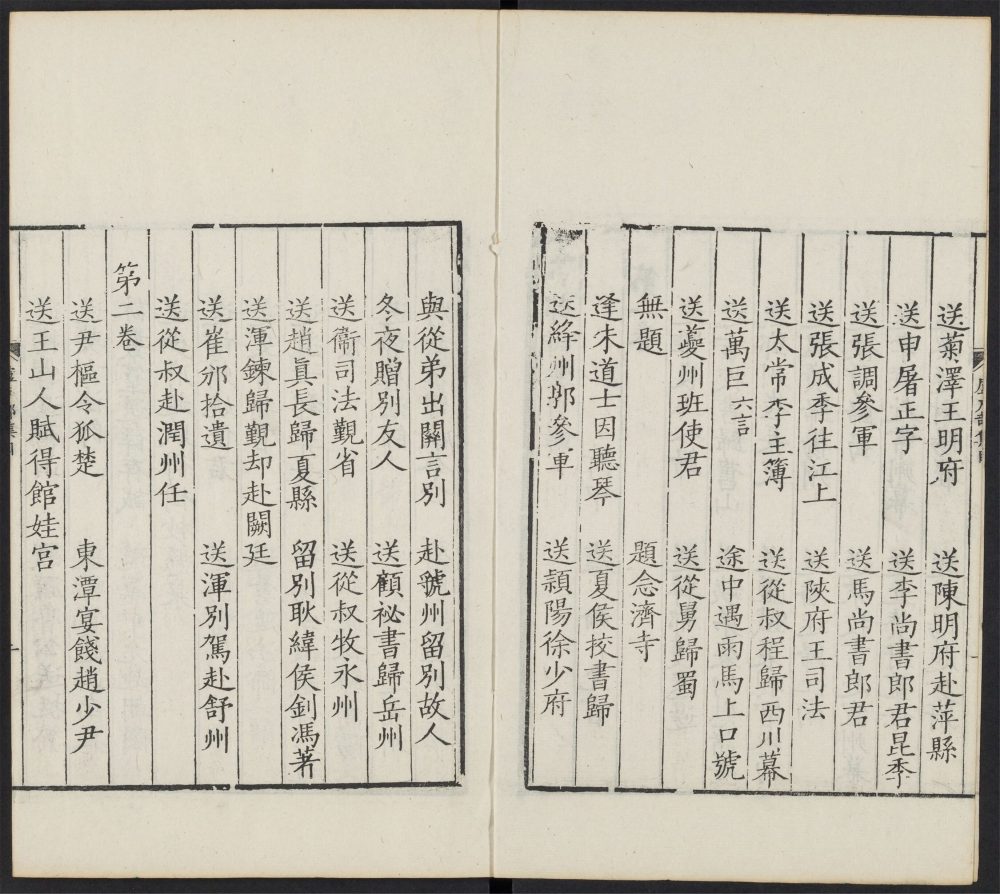 送菊澤王明府　送陳明府赴萍縣
送申屠正字　送李尚書郎君昆季
送張調參軍　送馬尚書郎君
送張成季往江上　送陝府王司法
送太常李主簿　送從叔程歸西川幕
送萬巨六言　途中遇雨馬上口號
送夔州班使君　送從舅歸蜀
無題　題念濟寺
逢未道士因聽琴　送夏侯挍書歸
送絳州郭參軍　送潁陽徐少府
與從弟出關言別　赴虢州留別故人
冬夜贈別友人　送顧祕書歸岳州
送衞司法覲省　送從叔牧永州
送趙眞長歸夏縣　留別耿緯侯釗馮著
送渾鍊歸覲却赴闕廷
送崔邠拾遺　送渾別駕赴舒州
送從叔赴潤州任
第二卷
送尹樞令狐楚　東潭宴餞趙少尹
送王山人賦得館娃宮